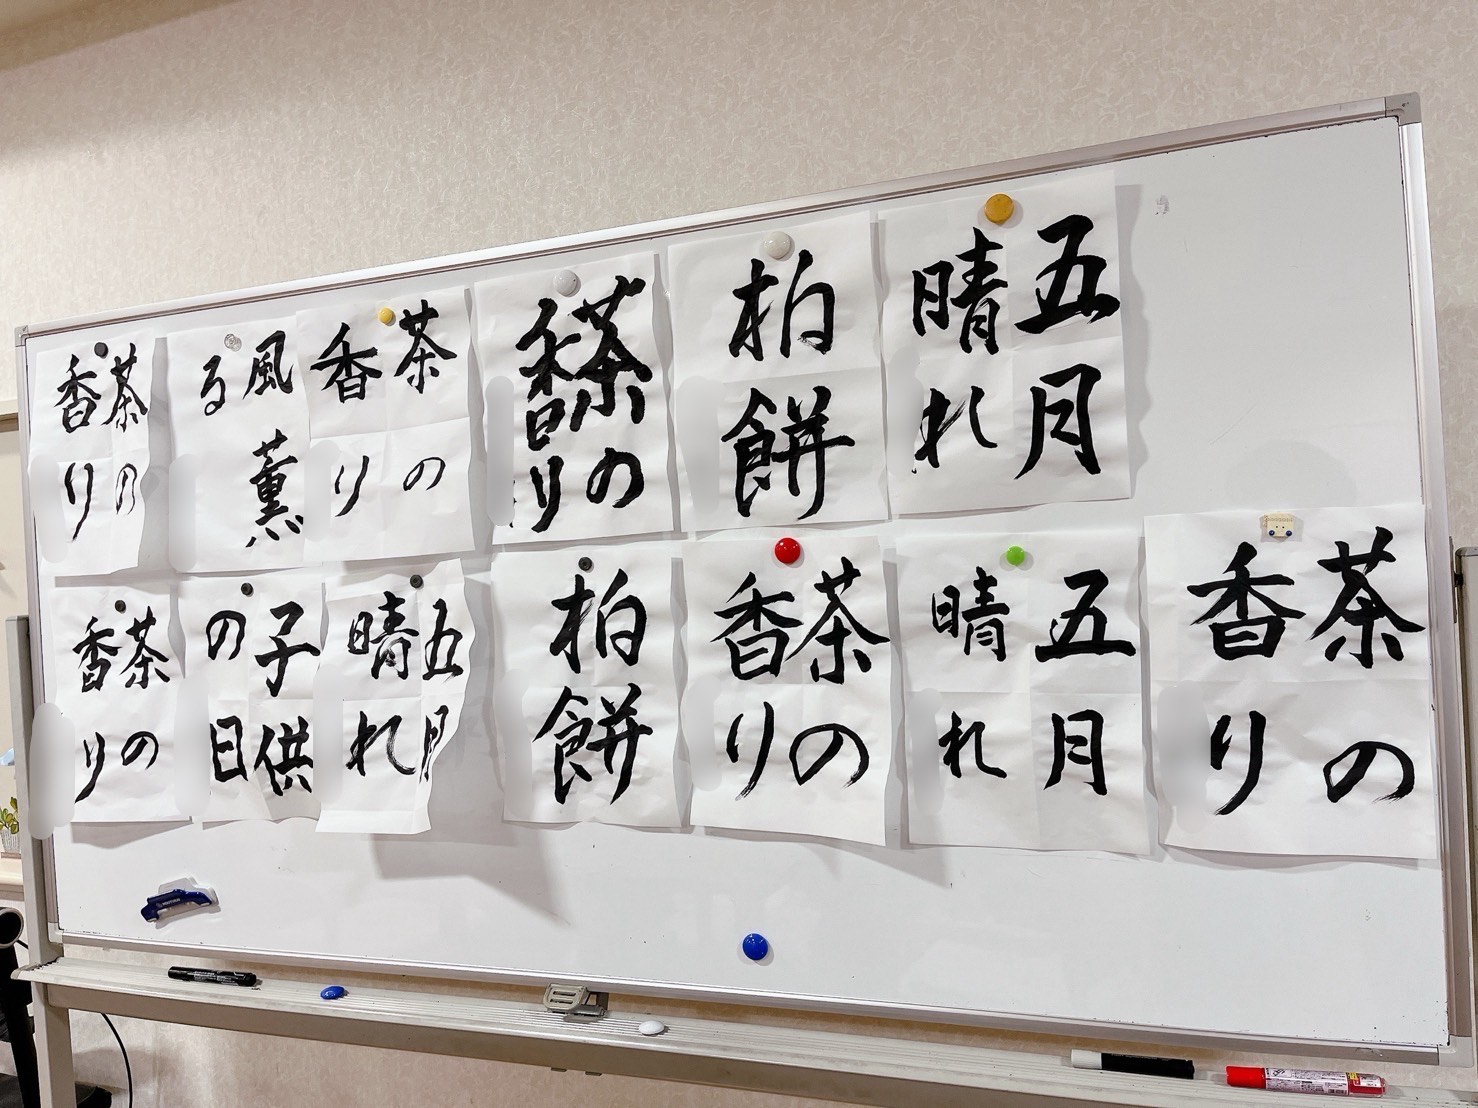 五月
晴れ
柏餅
茶の
香り
茶の
香り
風薫
る
茶の
香り
茶の
香り
五月
晴れ
茶の
香り
柏餅
五月
晴れ
子供
の日
茶の
香り